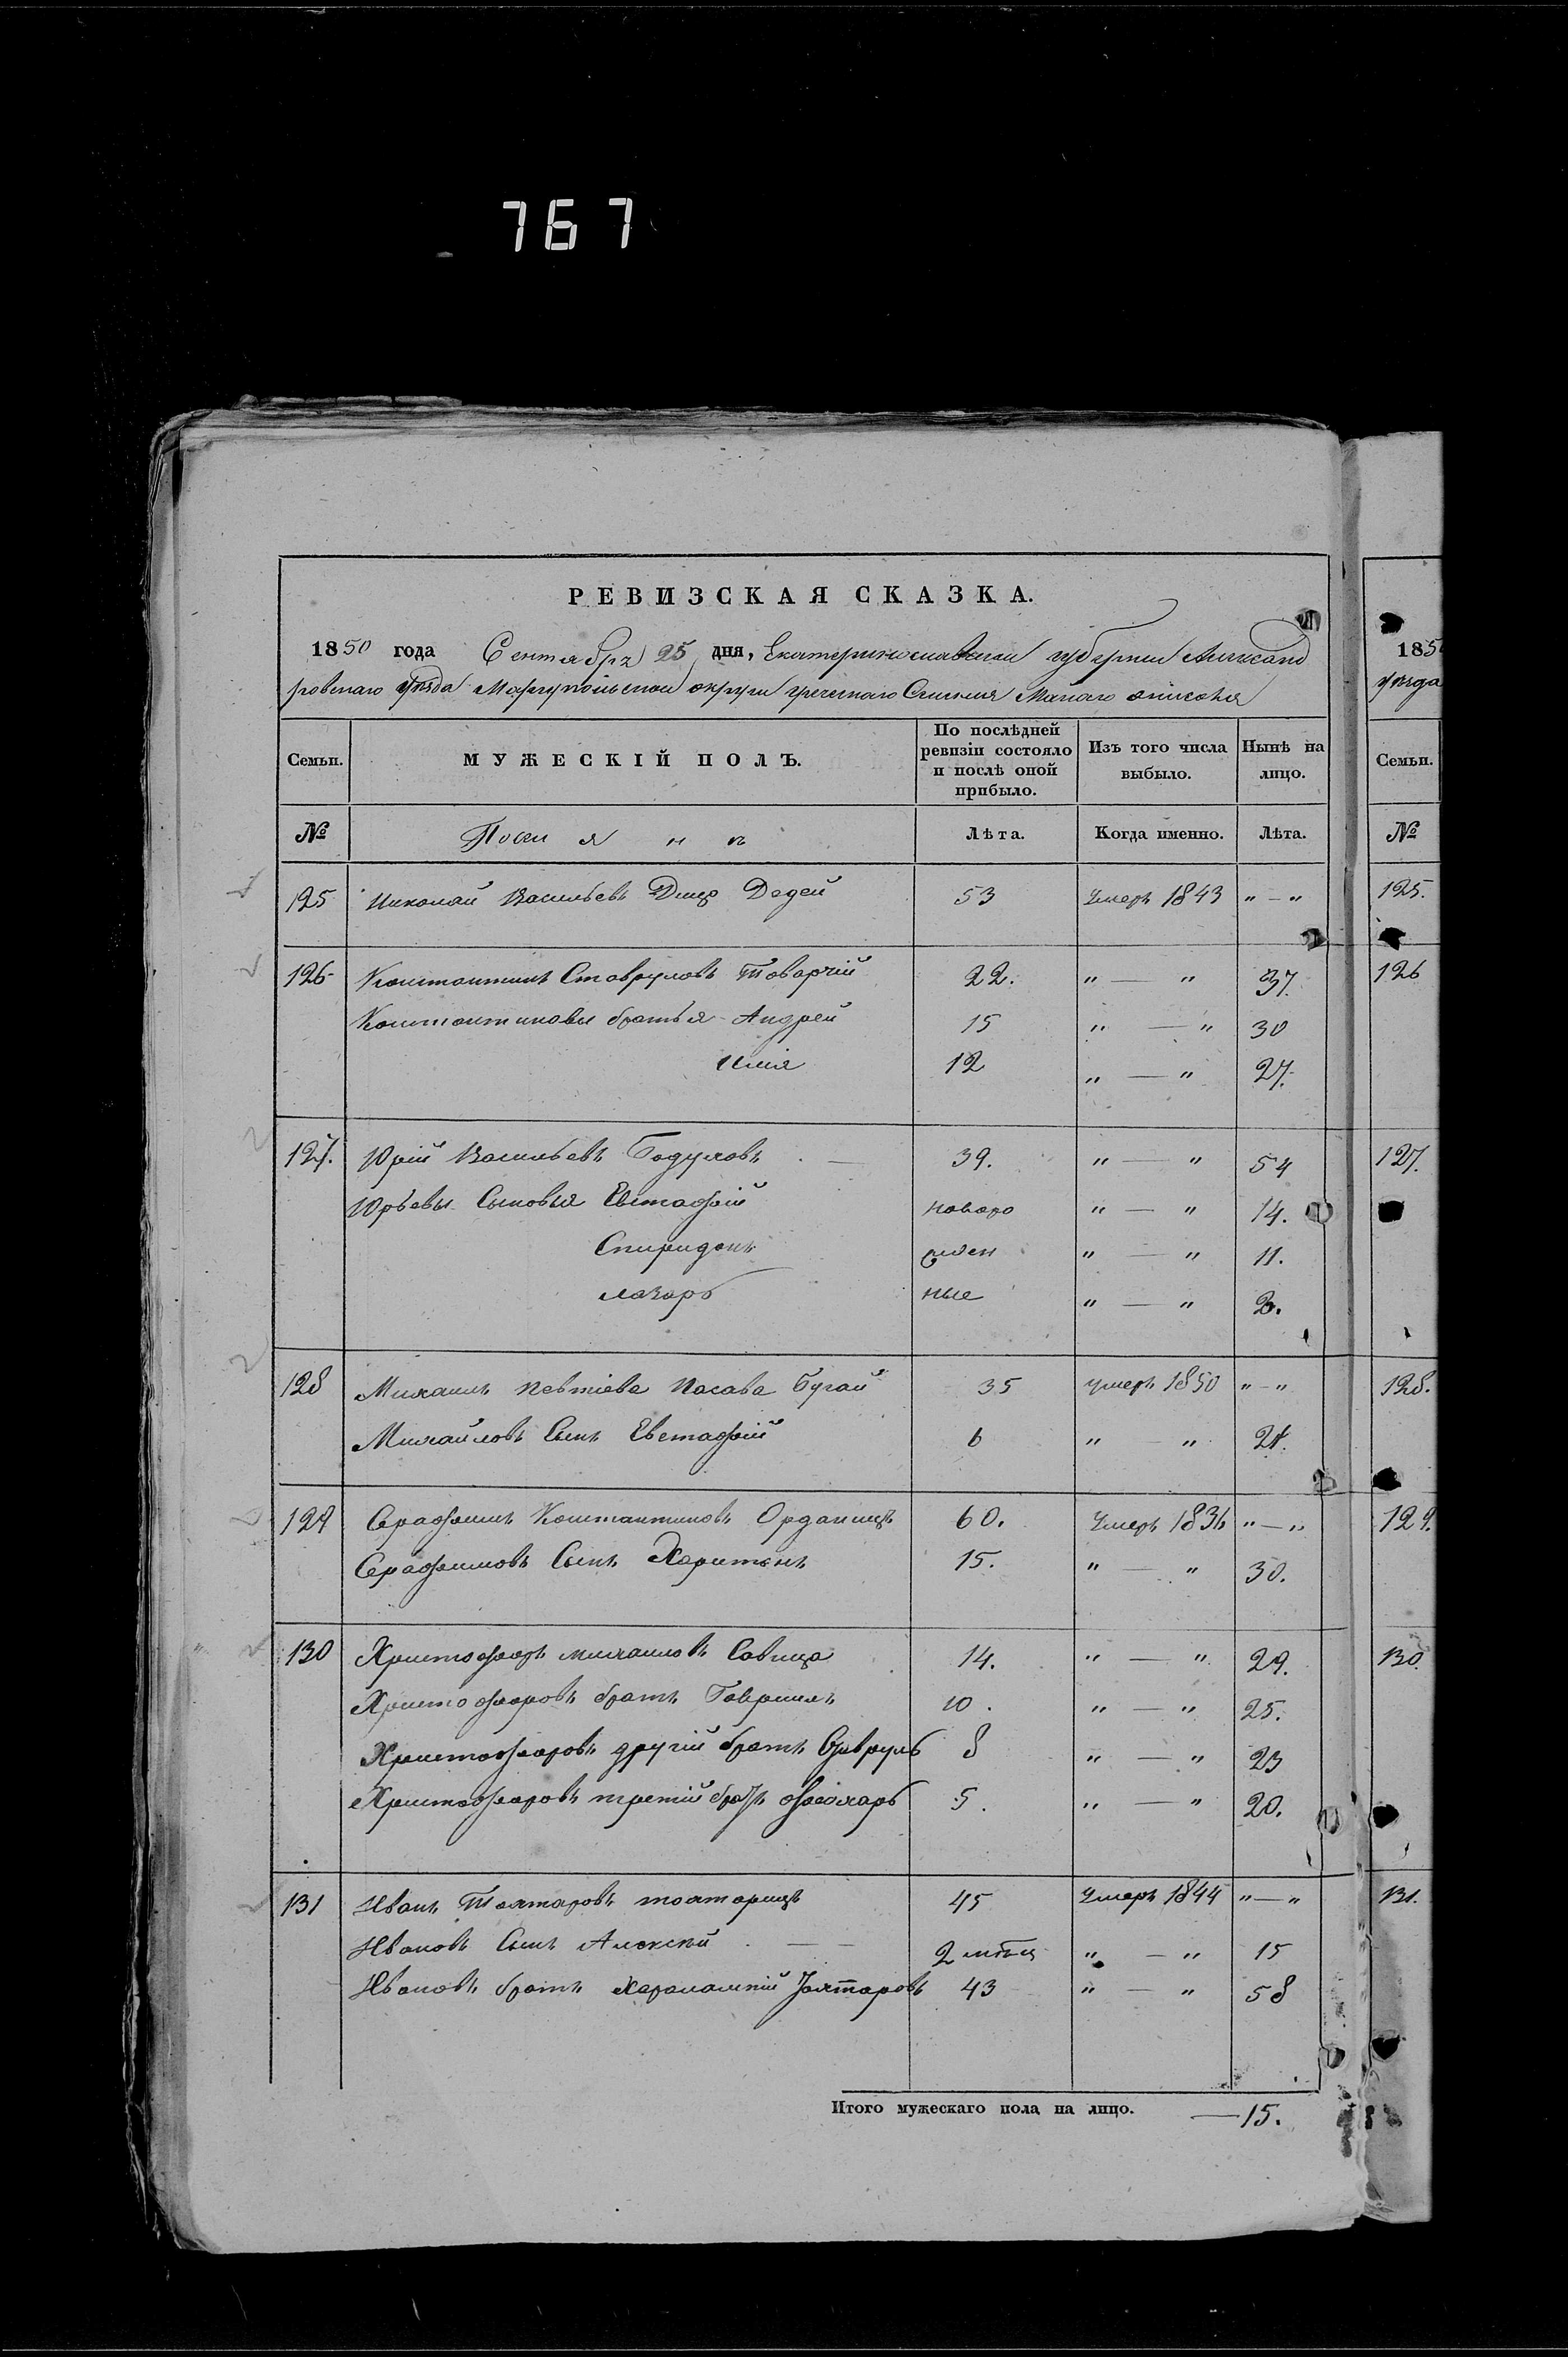 767
РЕВИЗСКАЯ СКАЗКА.
1850 года Сентября 25 дня, Екатеринославской губернии Александ
ровскаго уѣзда Мариупольскаго округа греческаго Селения Малаго Янисоля
Семьи. МУЖЕСКІЙ ПОЛЪ. По послѣдней ревизіи состояло и послѣ оной прибыло. Изъ того числа выбыло. Нынѣ на лицо.
№ Поселяне Лѣта. Когда именно. Лѣта.
125 Николай Васильевъ Дедей 53 Умеръ 1843 " — "
126 Константинъ Ставруловъ Товарчій 22. " — " 37.
Константиновы братья Андрей 15 " — " 30
Илія 12 " — " 27.
127. Юрій Васильевъ Бодуловъ 39. " — " 54
Юрьевы Сыновья Евстафій новоро " — " 14.
Спиридонъ жден " — " 11.
Лазарь ные " — " 2.
128 Михаилъ Бугай 35 умеръ 1850 " — "
Михайловъ Сынъ Евстафій 6 " — " 21.
129 Серафимъ Константиновъ 60. Умеръ 1836 " — "
Серафимовъ Сынъ Харитонъ 15. " — " 30.
130 Христофоръ Михаиловъ Савица 14. " — " 29.
Христофоровъ братъ Гавриилъ 10. " — " 25.
Христофоровъ другій братъ 8 " — " 23
Христофоровъ третій братъ 5. " — " 20.
131 Иванъ Тохтаровъ 45 Умеръ 1844 " — "
Ивановъ Сынъ Алексѣй 2 мѣсц " — " 15
Ивановъ братъ Харлампій Тохтаровъ 43 " — " 58
Итого мужескаго пола на лицо. — 15.
185
уѣзда
Семьи.
№
125.
126
127.
128.
129.
130.
131.